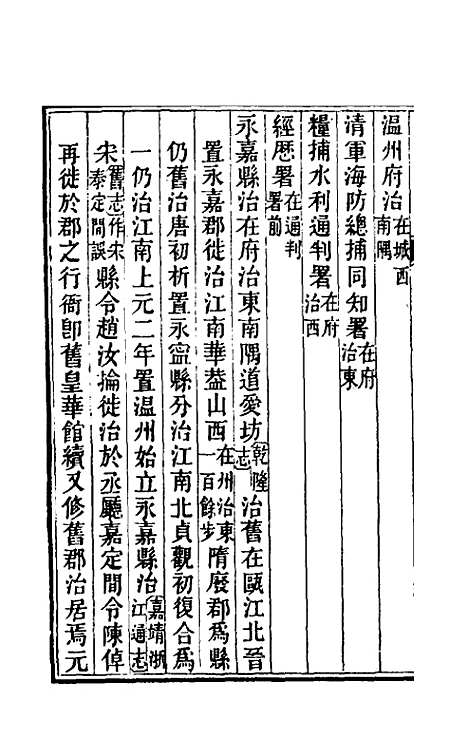 温州府治在城西南隅
清軍海防總捕同知署在府治東
糧捕水利通判署在府治西
經歴署在通判署前
永嘉縣治在府治東南隅道愛坊乾隆志治舊在甌江北晉
置永嘉郡徙治江南華葢山西在州治東一百餘步隋廢郡爲縣
仍舊治唐初析置永寧縣分治江南北貞觀初復合爲
一仍治江南上元二年置温州始立永嘉縣治嘉靖浙江通志
宋舊志作宋泰定間誤縣令趙汝掄徙治於丞廳嘉定間令陳倬
再徙於郡之行衙卽舊皇華館續又修舊郡治居焉元